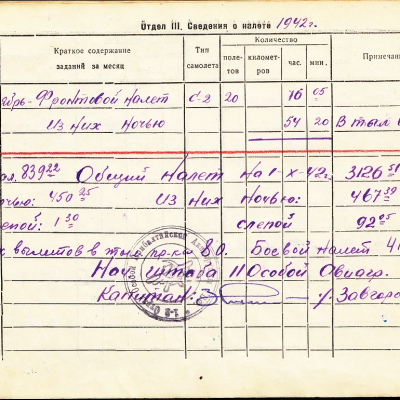 Отдел III. Сведения о налете 1942 г.
Краткое содержание заданий за месяц
Тип самолета
Количество
полетов
километров
час.
мин.
Примечан
брь- Фронтовой налет С-2 20 76 05
Из них ночью 54 20 В тыл
839 22 Общий налет на 1-X-42г. 3126 51
очью: 450 25 Из них ночью: 467 39
епой: 1 30 слепой 92 05
вылетов в тыл пр-ка 80. Боевой налет 41
Нач штаба 11 Особой Авиагр.
Капитан: Завгоро